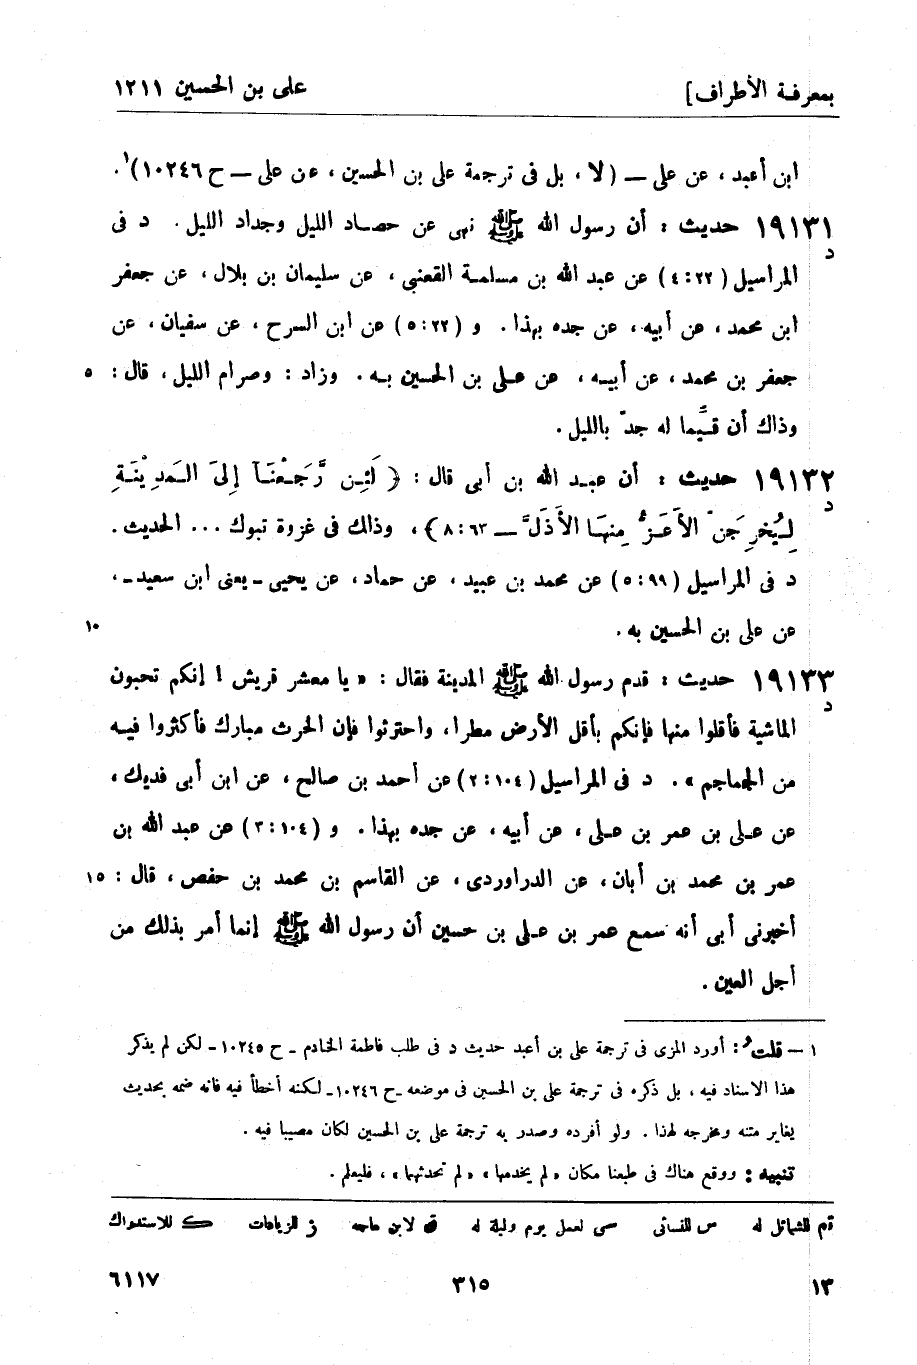 بمعرفة الأطراف] على بن الحسين ١٢١١
ابن أعبد، عن على — (لا، بل فى ترجمة على بن الحسين، عن على — ح ١٠٢٤٦)١.
١٩١٣١ حديث: أن رسول الله ﷺ نهى عن حصاد الليل وجداد الليل. د فى
د
المراسيل (٢٢:٤) عن عبد الله بن مسلمة القعنبى، عن سليمان بن بلال، عن جعفر
ابن محمد، عن أبيه، عن جده بهذا. و (٢٢:٥) عن ابن السرح، عن سفيان، عن
جعفر بن محمد، عن أبيه، عن على بن الحسين به. وزاد: وصرام الليل، قال: ٥
وذاك أن قيّما له جدّ بالليل.
١٩١٣٢ حديث: أن عبد الله بن أبى قال: ﴿ لَئِن رَّجَعْنَآ إِلىَ المَدِيْنَةِ
د
لَيُخرِجَنّ الأَعَزُّ مِنهَا الأَذَلَّ — ٦٣:٨﴾، وذلك فى غزوة تبوك ... الحديث.
د فى المراسيل (٩٩:٥) عن محمد بن عبيد، عن حماد، عن يحيى - يعنى ابن سعيد -،
عن على بن الحسين به. ١٠
١٩١٣٣ حديث: قدم رسول الله ﷺ المدينة فقال: «يا معشر قريش! إنكم تحبون
د
الماشية فأقلوا منها فإنكم بأقل الأرض مطرا، واحترثوا فإن الحرث مبارك فأكثروا فيه
من الجماجم». د فى المراسيل (١٠٤:٢) عن أحمد بن صالح، عن ابن أبى فديك،
عن على بن عمر بن على، عن أبيه، عن جده بهذا. و (١٠٤:٣) عن عبد الله بن
عمر بن محمد بن أبان، عن الدراوردى، عن القاسم بن محمد بن حفص، قال: ١٥
أخبرنى أبى أنه سمع عمر بن على بن حسين أن رسول الله ﷺ إنما أمر بذلك من
أجل العين.
١ — قلتُ: أورد المزى فى ترجمة على بن أعبد حديث د فى طلب فاطمة الخادم - ح ١٠٢٤٥ - لكن لم يذكر
هذا الاسناد فيه، بل ذكره فى ترجمة على بن الحسين فى موضعه - ح ١٠٢٤٦ - لكنه أخطأ فيه فانه ضمه بحديث
يغاير متنه ومخرجه لهذا. ولو أفرده وصدر به ترجمة على بن الحسين لكان مصيبا فيه.
تنبيه: ووقع هناك فى طبعنا مكان «لم يخدمها» «لم تحدثيها»، فليعلم.
تم للشمائل له س للنسائى سى لعمل يوم وليلة له ق لابن ماجه ز للزيادات ك للاستدراك
١٣ ٣١٥ ٦١١٧